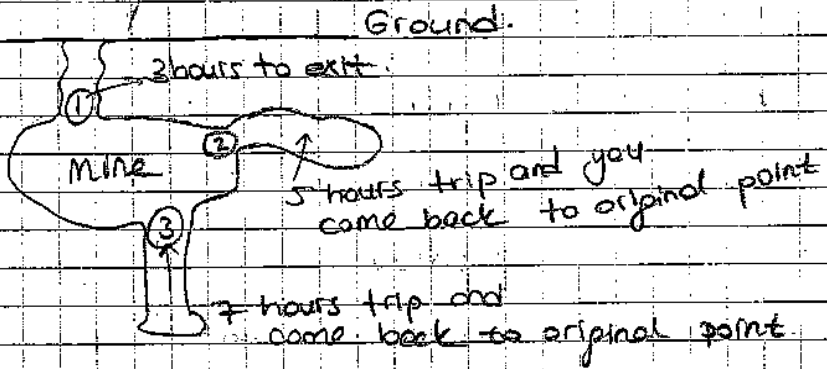 Ground.
3 hours to exit.
①
②
Mine
5 hours trip and you
come back to original point
③
7 hours trip and
come back to original point.